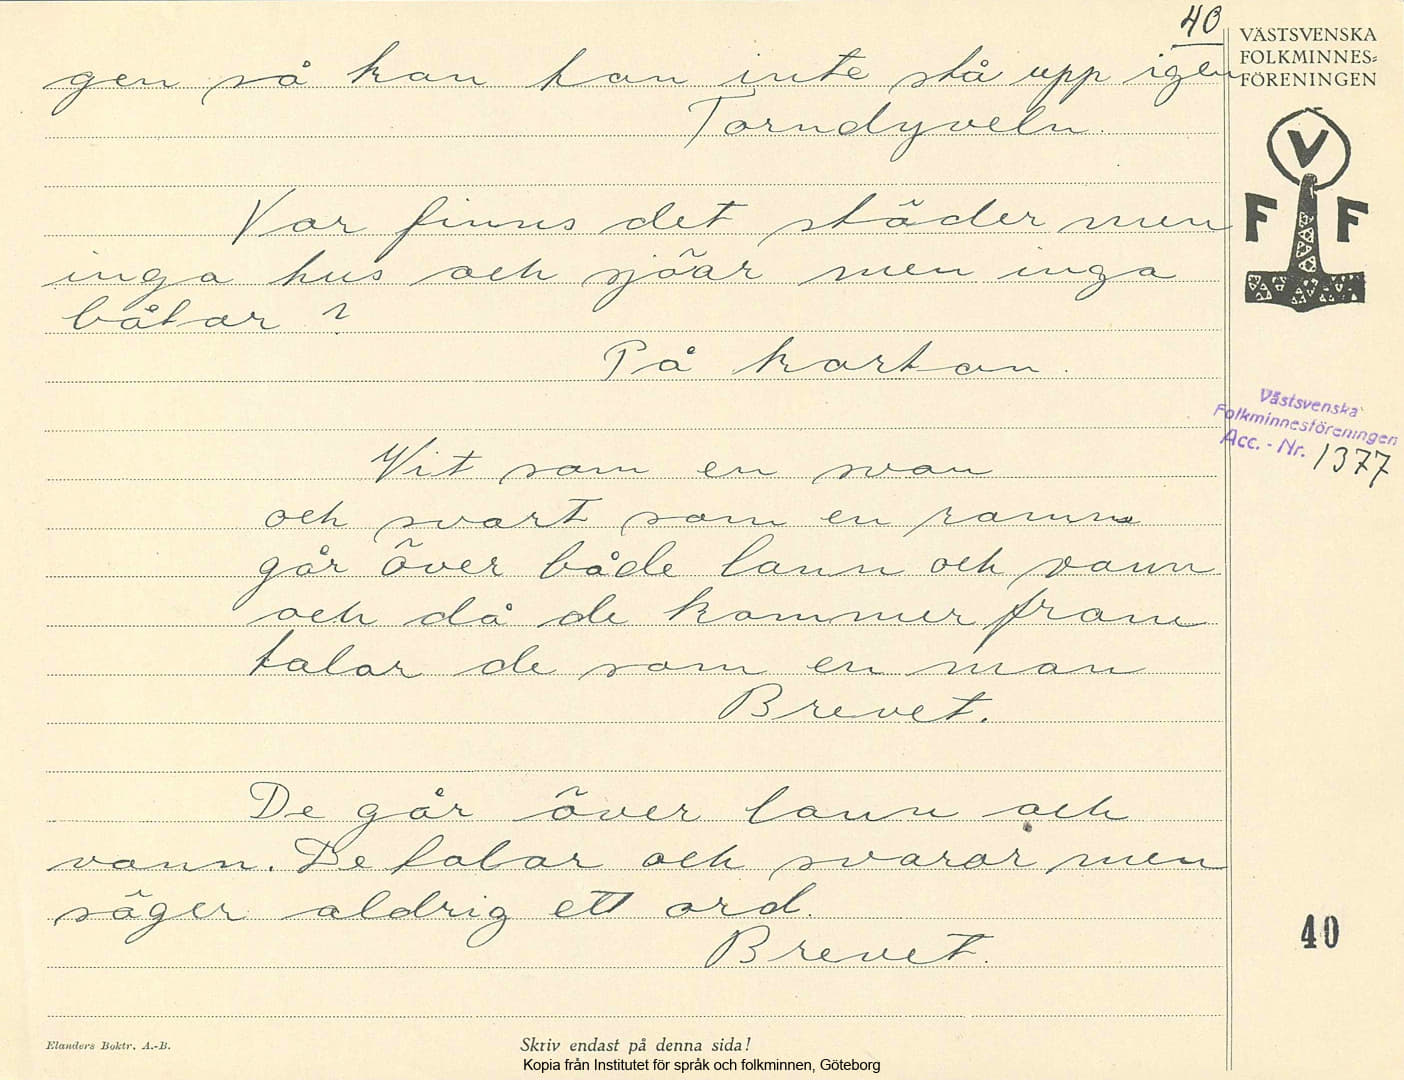 40
VÄSTSVENSKA
FOLKMINNES=
FÖRENINGEN
gen så kan han inte stå upp igen
Torndyveln.
V
F F
Var finns det städer men
inga hus och sjöar men inga
båtar?
På kartan.
Västsvenska
Folkminnesföreningen
Acc. - Nr. 1377
Vit som en svan
och svart som en ramn
går över både lann och vann
och då de kommer fram
talar de som en man
Brevet.
De går över lann och
vann. De talar och svarar men
säger aldrig ett ord.
Brevet.
40
Elanders Boktr. A.-B.
Skriv endast på denna sida!
Kopia från Institutet för språk och folkminnen, Göteborg